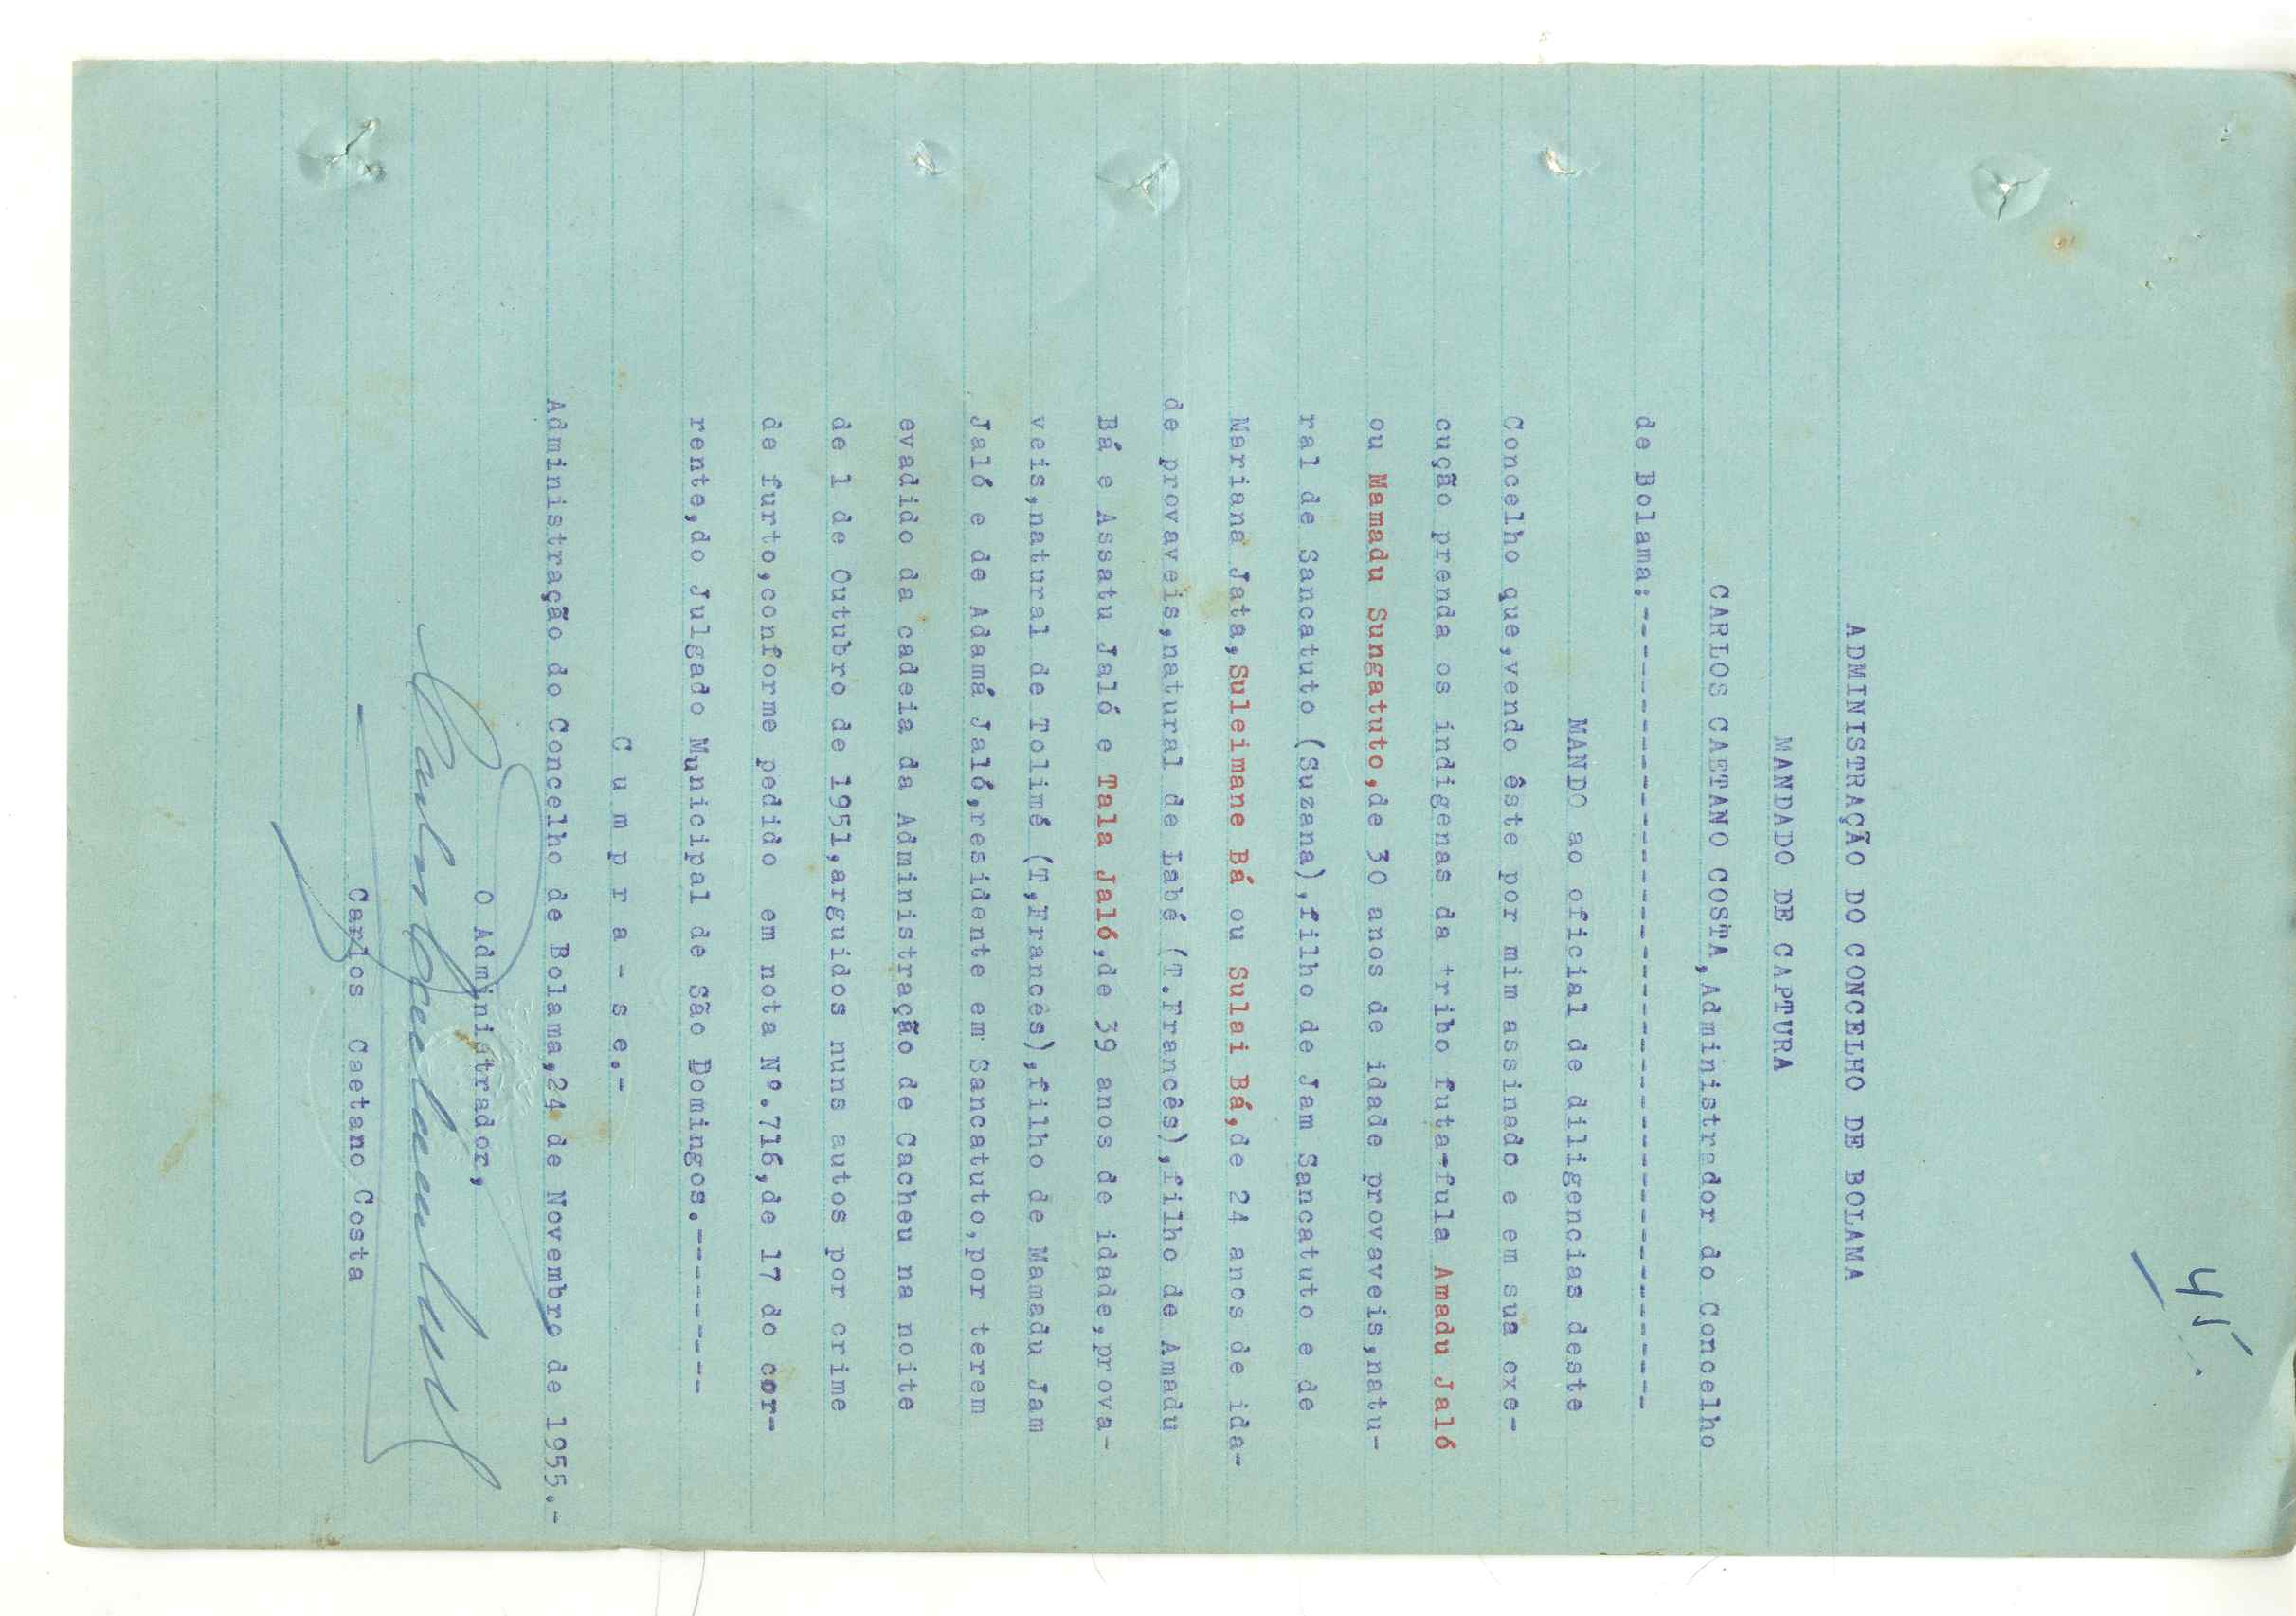 45.
ADMINISTRAÇÃO DO CONCELHO DE BOLAMA
MANDADO DE CAPTURA
CARLOS CAETANO COSTA,Administrador do Concelho
de Bolama:-------------------------------------
MANDO ao oficial de diligencias deste
Concelho que,vendo êste por mim assinado e em sua exe-
cução prenda os indigenas da tribo futa-fula Amadu Jaló
ou Mamadu Sungatuto,de 30 anos de idade provaveis,natu-
ral de Sancatuto (Suzana),filho de Jam Sancatuto e de
Mariana Jata,Suleimane Bá ou Sulai Bá,de 24 anos de ida-
de provaveis,natural de Labé (T.Francês),filho de Amadu
Bá e Assatu Jaló e Tala Jaló,de 39 anos de idade,prova-
veis,natural de Tolimé (T,Francês),filho de Mamadu Jam
Jaló e de Adamá Jaló,residente em Sancatuto,por terem
evadido da cadeia da Administração de Cacheu na noite
de 1 de Outubro de 1951,arguidos nuns autos por crime
de furto,conforme pedido em nota Nº.716,de 17 do cor-
rente,do Julgado Municipal de São Domingos.---------
C u m p r a - s e.-
Administração do Concelho de Bolama,24 de Novembro de 1955.-
O Administrador,
Carlos Caetano Costa